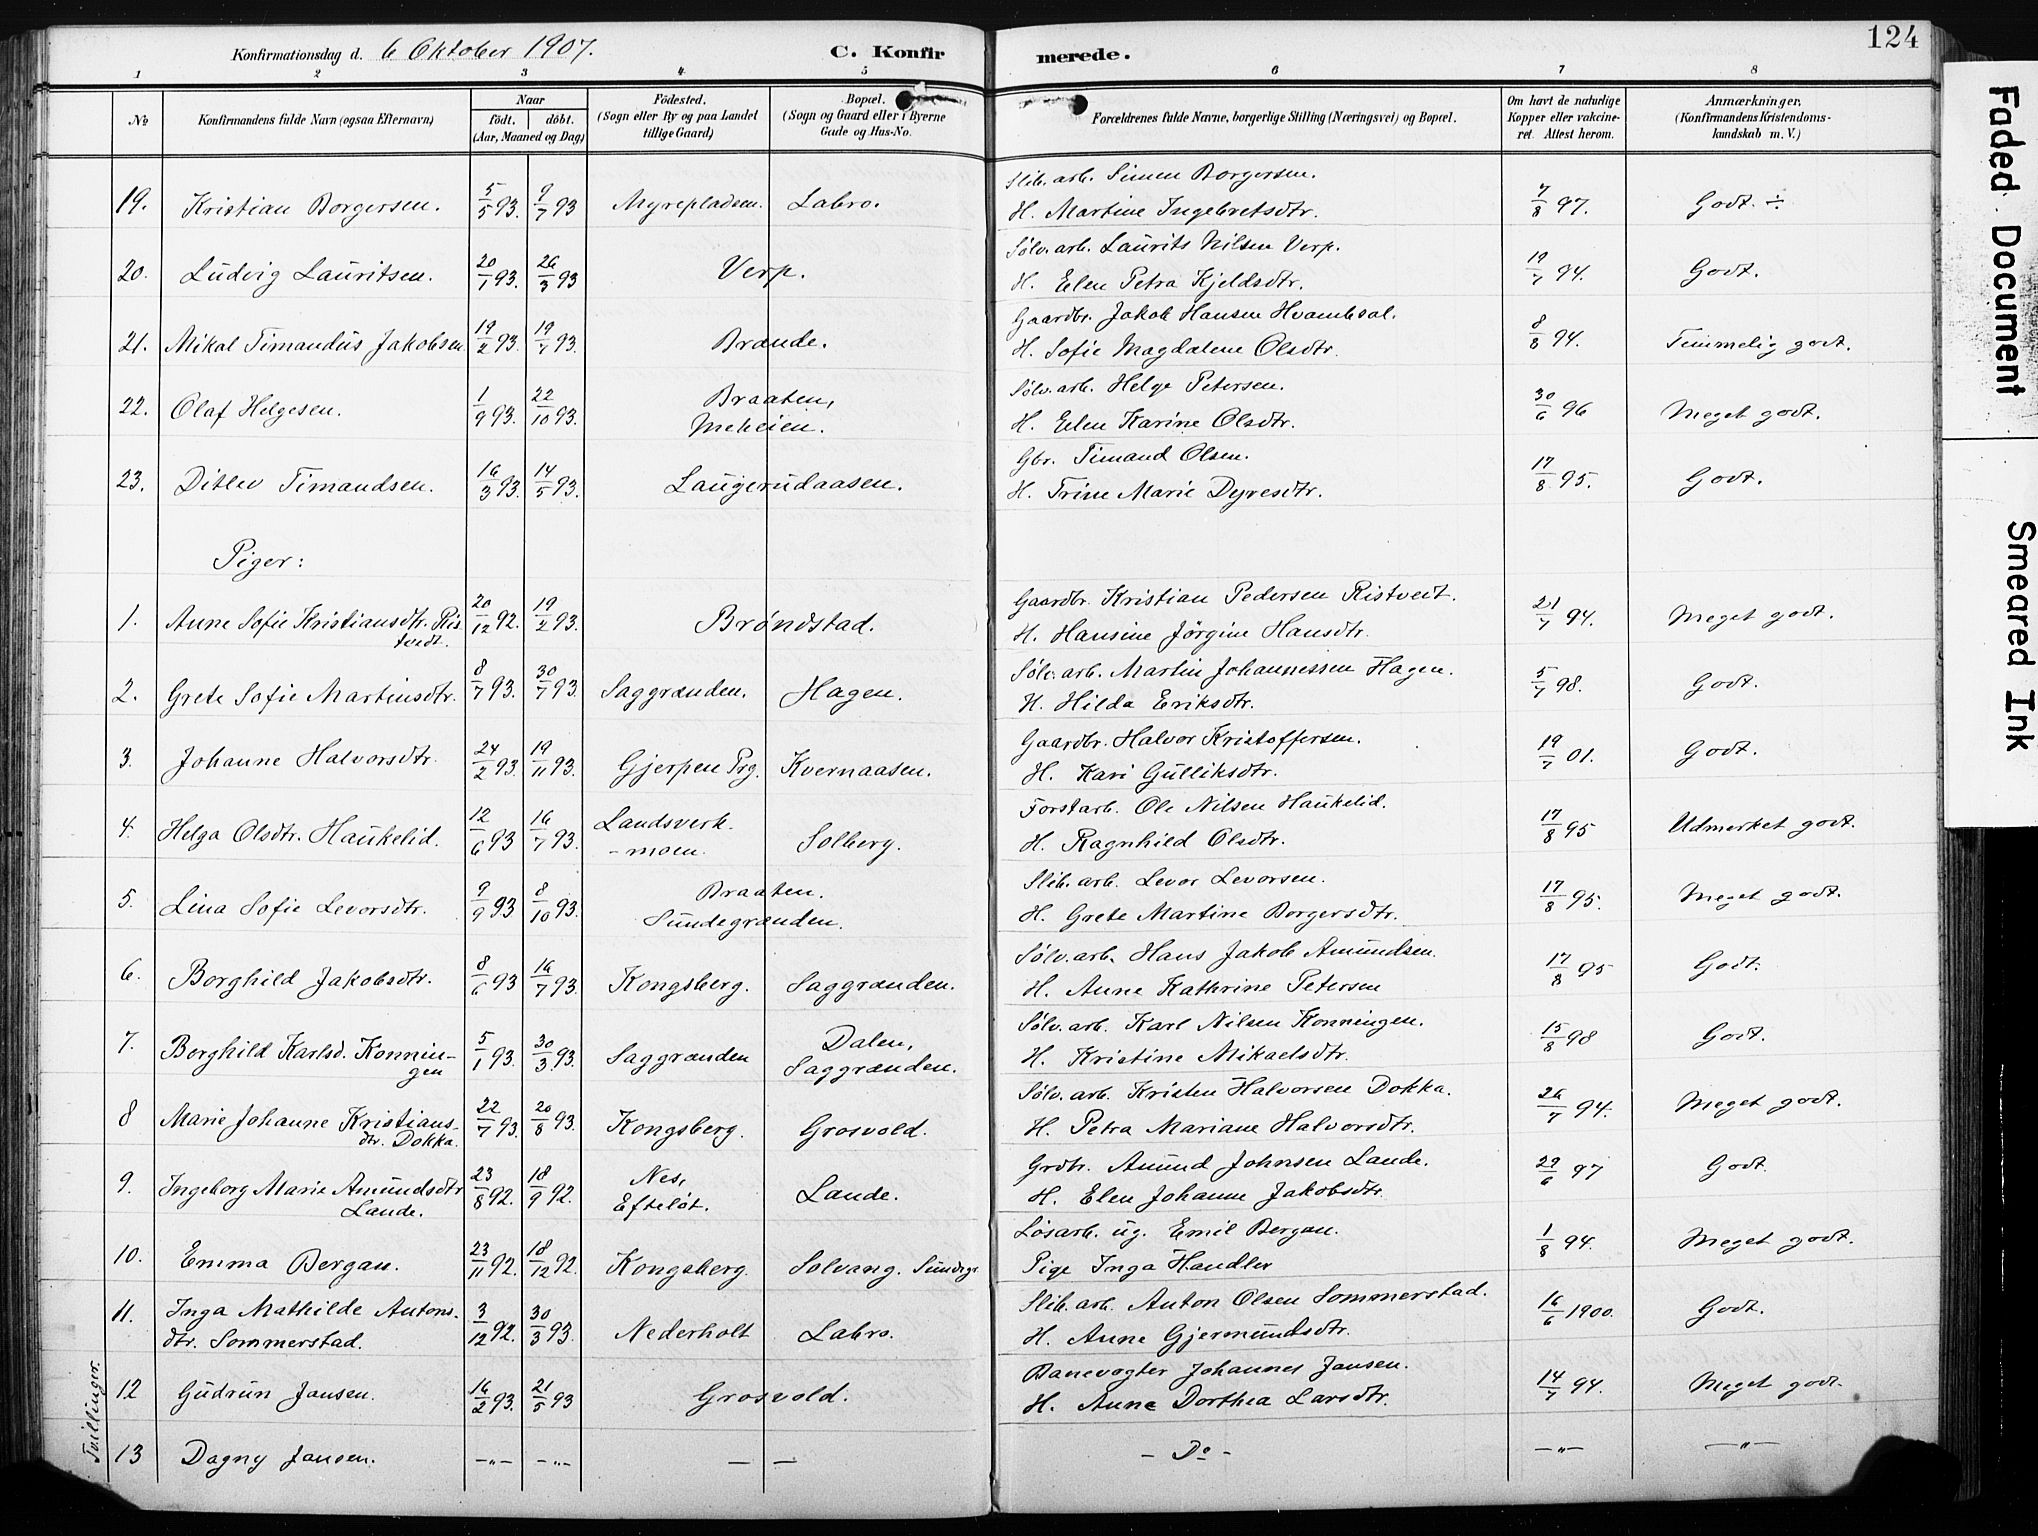 124
Konfirmationsdag d. 6 Oktober 1907. C. Konfirmerede.
1 2 3 4 5 6 7 8
No Konfirmandens fulde Navn (ogsaa Efternavn) Naar født. døbt. (Aar, Maaned og Dag) Fødested. (Sogn eller By og paa Landet tillige Gaard) Bopæl. (Sogn og Gaard eller i Byerne Gade og Hus-No. Forældrenes fulde Navne, borgerlige Stilling (Næringsvei) og Bopæl. Om havt de naturlige Kopper eller vakcineret. Attest herom. Anmærkninger, (Konfirmandens Kristendomskundskab m. V.)
Slib. arb. Simen Borgersen.
19. Kristian Borgersen. 5/5 93. 9/7 93 Myrepladsen. Labro. H. Martine Ingebretsdtr. 7/8 97. Godt. ÷
Sølv. arb. Laurits Nilsen Verp.
20. Ludvig Lauritsen. 20/1 93. 26/3 93 Verp. H. Elen Petra Kjeldsdtr. 19/7 94. Godt.
Gaardbr. Jakob Hansen Hvambsal.
21. Mikal Timandus Jakobsen 19/2 93. 19/7 93. Brænde. H. Sofie Magdalene Olsdtr. 8/8 94. Temmelig godt.
Sølv. arb. Helge Petersen.
22. Olaf Helgesen. 1/9 93. 22/10 93. Braaten, Meheien. H. Elen Karine Olsdtr. 30/6 96 Meget godt.
Gbr. Timand Olsen.
23. Ditlev Timandsen. 16/3 93. 14/5 93. Laugerudaasen. H. Trine Marie Dyresdtr. 17/8 95. Godt.
Piger:
Gaardbr. Kristian Pedersen Ristvedt.
1. Anne Sofie Kristiansdtr. Ristvedt. 20/12 92. 19/2 93. Brøndstad. H. Hansine Jørgine Hansdtr. 21/7 94. Meget godt.
Sølv. arb. Martin Johannessen Hagen.
2. Grete Sofie Martinsdtr. 8/7 93. 30/7 93. Saggrænden. Hagen. H. Hilda Eriksdtr. 5/7 98. Godt.
Gaardbr. Halvor Kristoffersen.
3. Johanne Halvorsdtr. 24/2 93. 19/11 93. Gjerpen Prg. Kvernaasen. H. Kari Gulliksdtr. 19/7 01. Godt.
Forstarb. Ole Nilsen Haukelid.
4. Helga Olsdtr. Haukelid. 12/6 93 16/7 93. Landsverk-moen. Solberg. H. Ragnhild Olsdtr. 17/8 95 Udmerket godt.
Slib. arb. Levor Levorsen.
5. Lina Sofie Levorsdtr. 9/9 93 8/10 93. Braaten. Sundegrænden. H. Grete Martine Borgersdtr. 17/8 95. Meget godt.
Sølv. arb. Hans Jakob Amundsen.
6. Borghild Jakobsdtr. 8/6 93 16/7 93. Kongsberg. Saggrænden. H. Anne Kathrine Petersen 17/8 95 Godt.
Sølv. arb. Karl Nilsen Konningen.
7. Borghild Karlsd. Konningen 5/1 93. 30/3 93. Saggrænden Dalen, Saggrænden. H. Kristine Mikaelsdtr. 15/8 98 Godt.
Sølv. arb. Kristen Halvorsen Dokka.
8 Marie Johanne Kristiansdtr. Dokka. 22/7 93. 20/8 93. Kongsberg. Grosvold. H. Petra Mariane Halvorsdtr. 26/7 94. Meget godt.
Grdbr. Amund Johnsen Lande.
9. Ingeborg Marie Amundsdtr Lande. 23/8 92. 18/9 92. Nes, Efteløt. Lande. H. Elen Johanne Jakobsdtr. 29/6 97 Godt.
Løsarb. ug. Emil Bergan.
10. Emma Bergan. 23/11 92. 18/12 92. Kongsberg. Solvang. Sundegr. Pige Inga Handler 1/8 94. Meget godt.
Slib. arb. Anton Olsen Sommerstad.
11. Inga Mathilde Antonsdtr. Sommerstad. 3/12 92. 30/3 93. Nederholt Labro. H. Anne Gjermundsdtr. 16/6 1900. Godt.
Banevogter Johannes Jansen.
12 Gudrun Jansen. 16/2 93. 21/5 93 Grosvold. H. Anne Dorthea Larsdtr. 14/7 94. Meget godt.
Tvillinger.
13 Dagny Jansen. —„— —„— — — - Do - —„— —„—
Faded Document
Smeared Ink